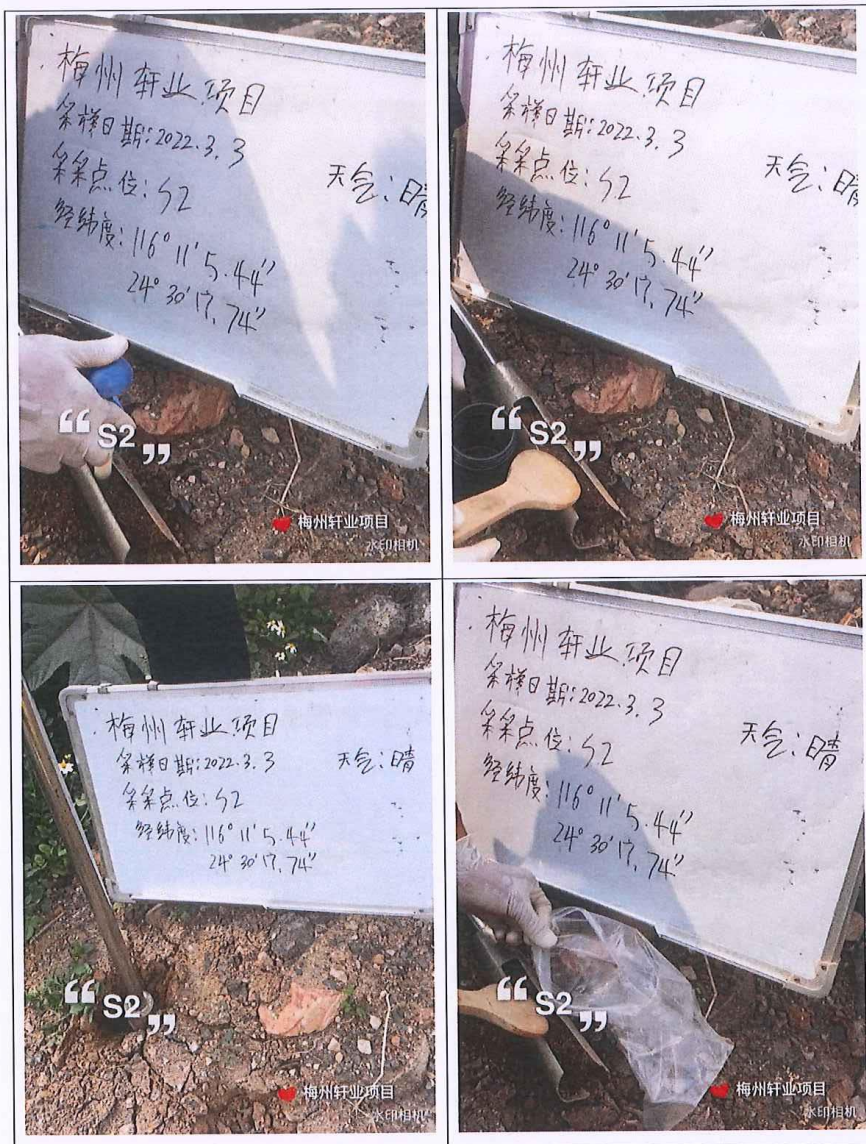 梅州轩业项目
采样日期:2022.3.3
天气:晴
采样点位:S2
经纬度:116°11'5.44"
24°30'17.74"
“S2”
梅州轩业项目
水印相机
梅州轩业项目
采样日期:2022.3.3
天气:晴
采样点位:S2
经纬度:116°11'5.44"
24°30'17.74"
“S2”
梅州轩业项目
水印相机
梅州轩业项目
采样日期:2022.3.3
天气:晴
采样点位:S2
经纬度:116°11'5.44"
24°30'17.74"
“S2”
梅州轩业项目
水印相机
梅州轩业项目
采样日期:2022.3.3
天气:晴
采样点位:S2
经纬度:116°11'5.44"
24°30'17.74"
“S2”
梅州轩业项目
水印相机